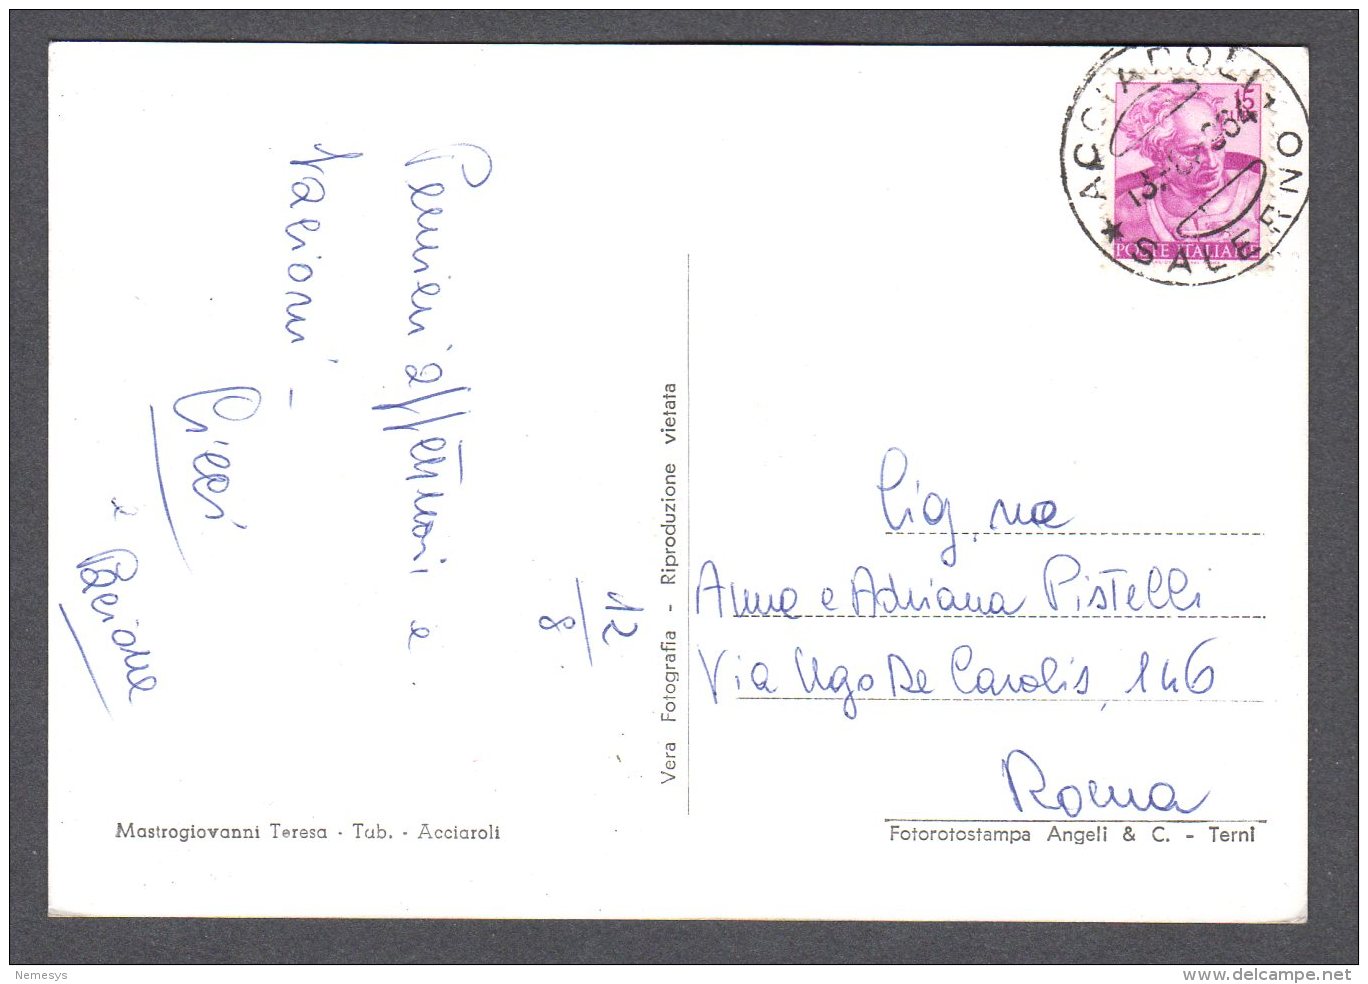 12
8
Pensieri affettuosi e
Vari
e
ACCIAROLI
* SALERNO
13. 8. 964
15
POSTE ITALIANE
Vera Fotografia - Riproduzione vietata
Sig.ne
Anna e Adriana Pistelli
Via Ugo De Carolis, 146
Roma
Mastrogiovanni Teresa - Tab. - Acciaroli
Fotorotostampa Angeli & C. - Terni
Nemesys
www.delcampe.net